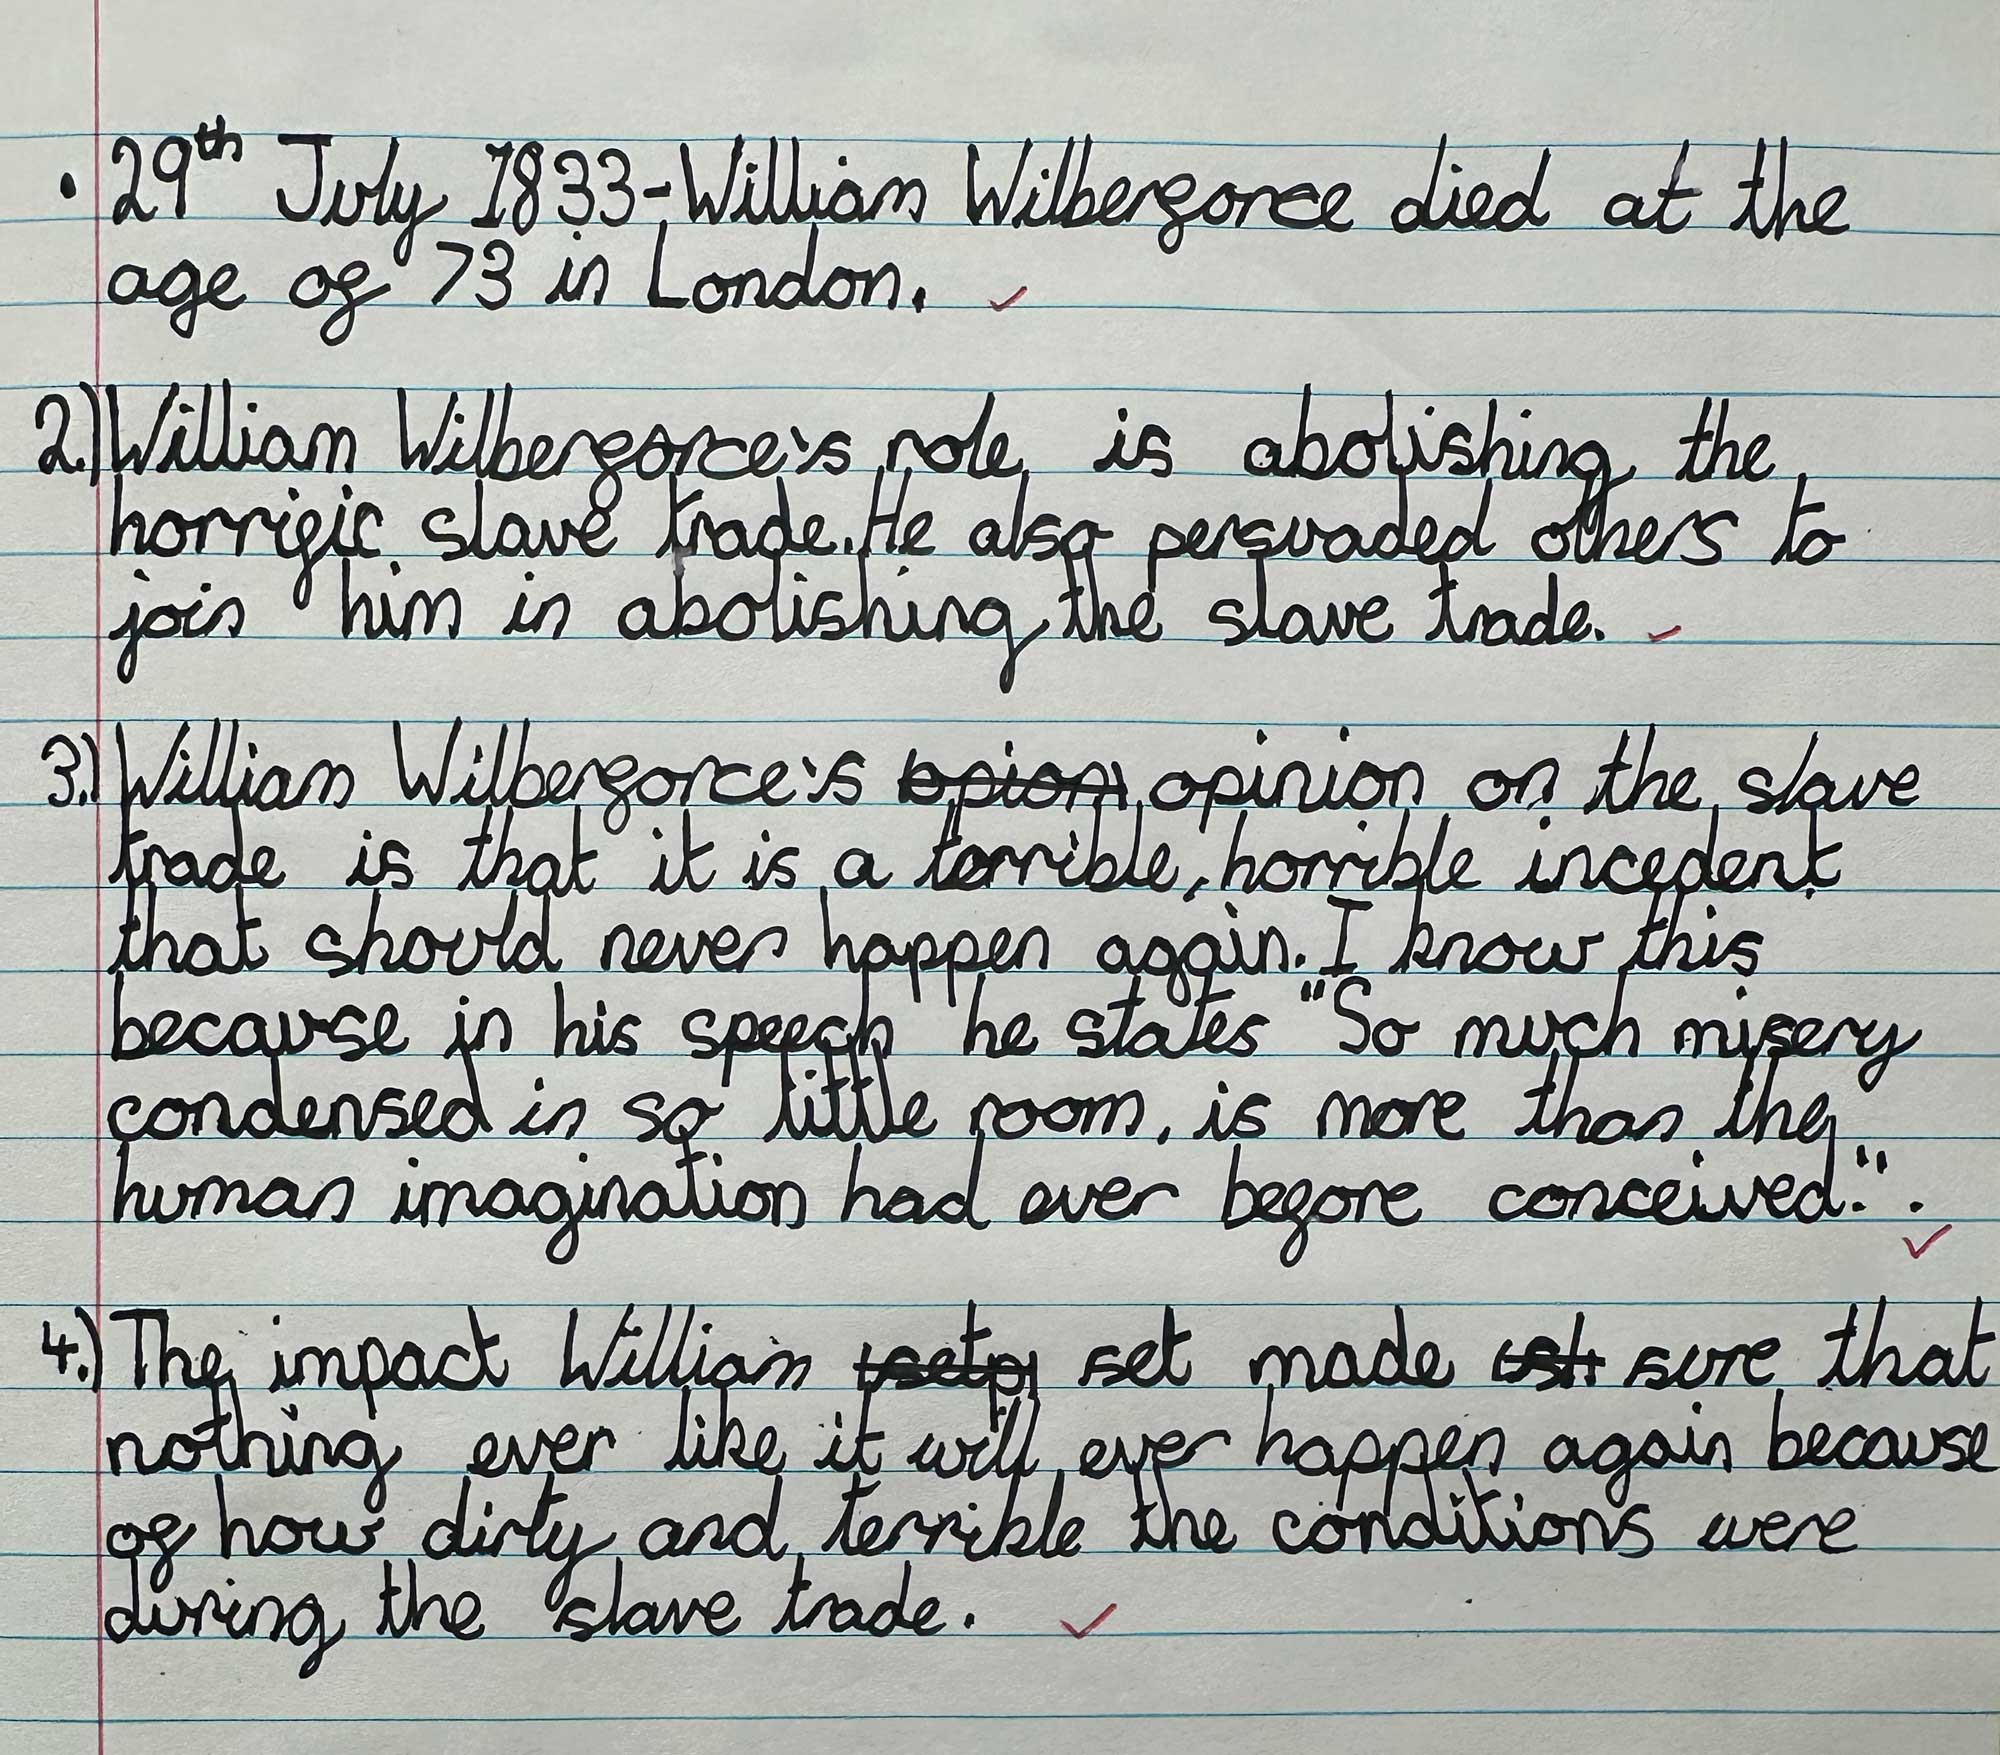 • 29th July 1833-William Wilberforce died at the
age of 73 in London.
2.) William Wilberforce's role is abolishing the
horrific slave trade. He also persuaded others to
join him in abolishing the slave trade.
3.) William Wilberforce's opion opinion on the slave
trade is that it is a terrible, horrible incedent
that should never happen again. I know this
because in his speech he states "So much misery
condensed in so little room, is more than the
human imagination had ever before conceived.".
4.) The impact William set made sure that
nothing ever like it will ever happen again because
of how dirty and terrible the conditions were
during the slave trade.